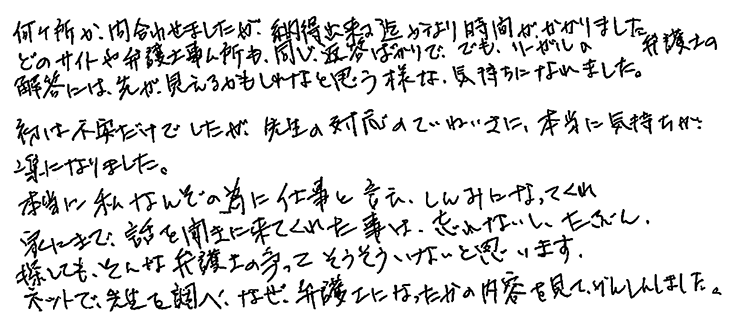 何ヶ所か、問合わせましたが、納得出来る迄かなり時間がかかりました
どのサイトや弁護士事ム所も、同じ返答ばかりで、でも、リーガルの 弁護士の
解答には、先が、見えるかもしれなと思う様な、気持ちになれました。
初は不安だけでしたが、先生の対応のていねいさに、本当に気持ちが、
楽になりました。
本当に私なんぞの為に仕事と言え、しんみになってくれ
家にまで、話を聞きに来てくれた事は、忘れないし、たぶん、
探しても、そんな弁護士の方って そうそういけないと思います。
ネットで、先生を調べ、なぜ、弁護士になったかの内容を見て、かんしんしました。